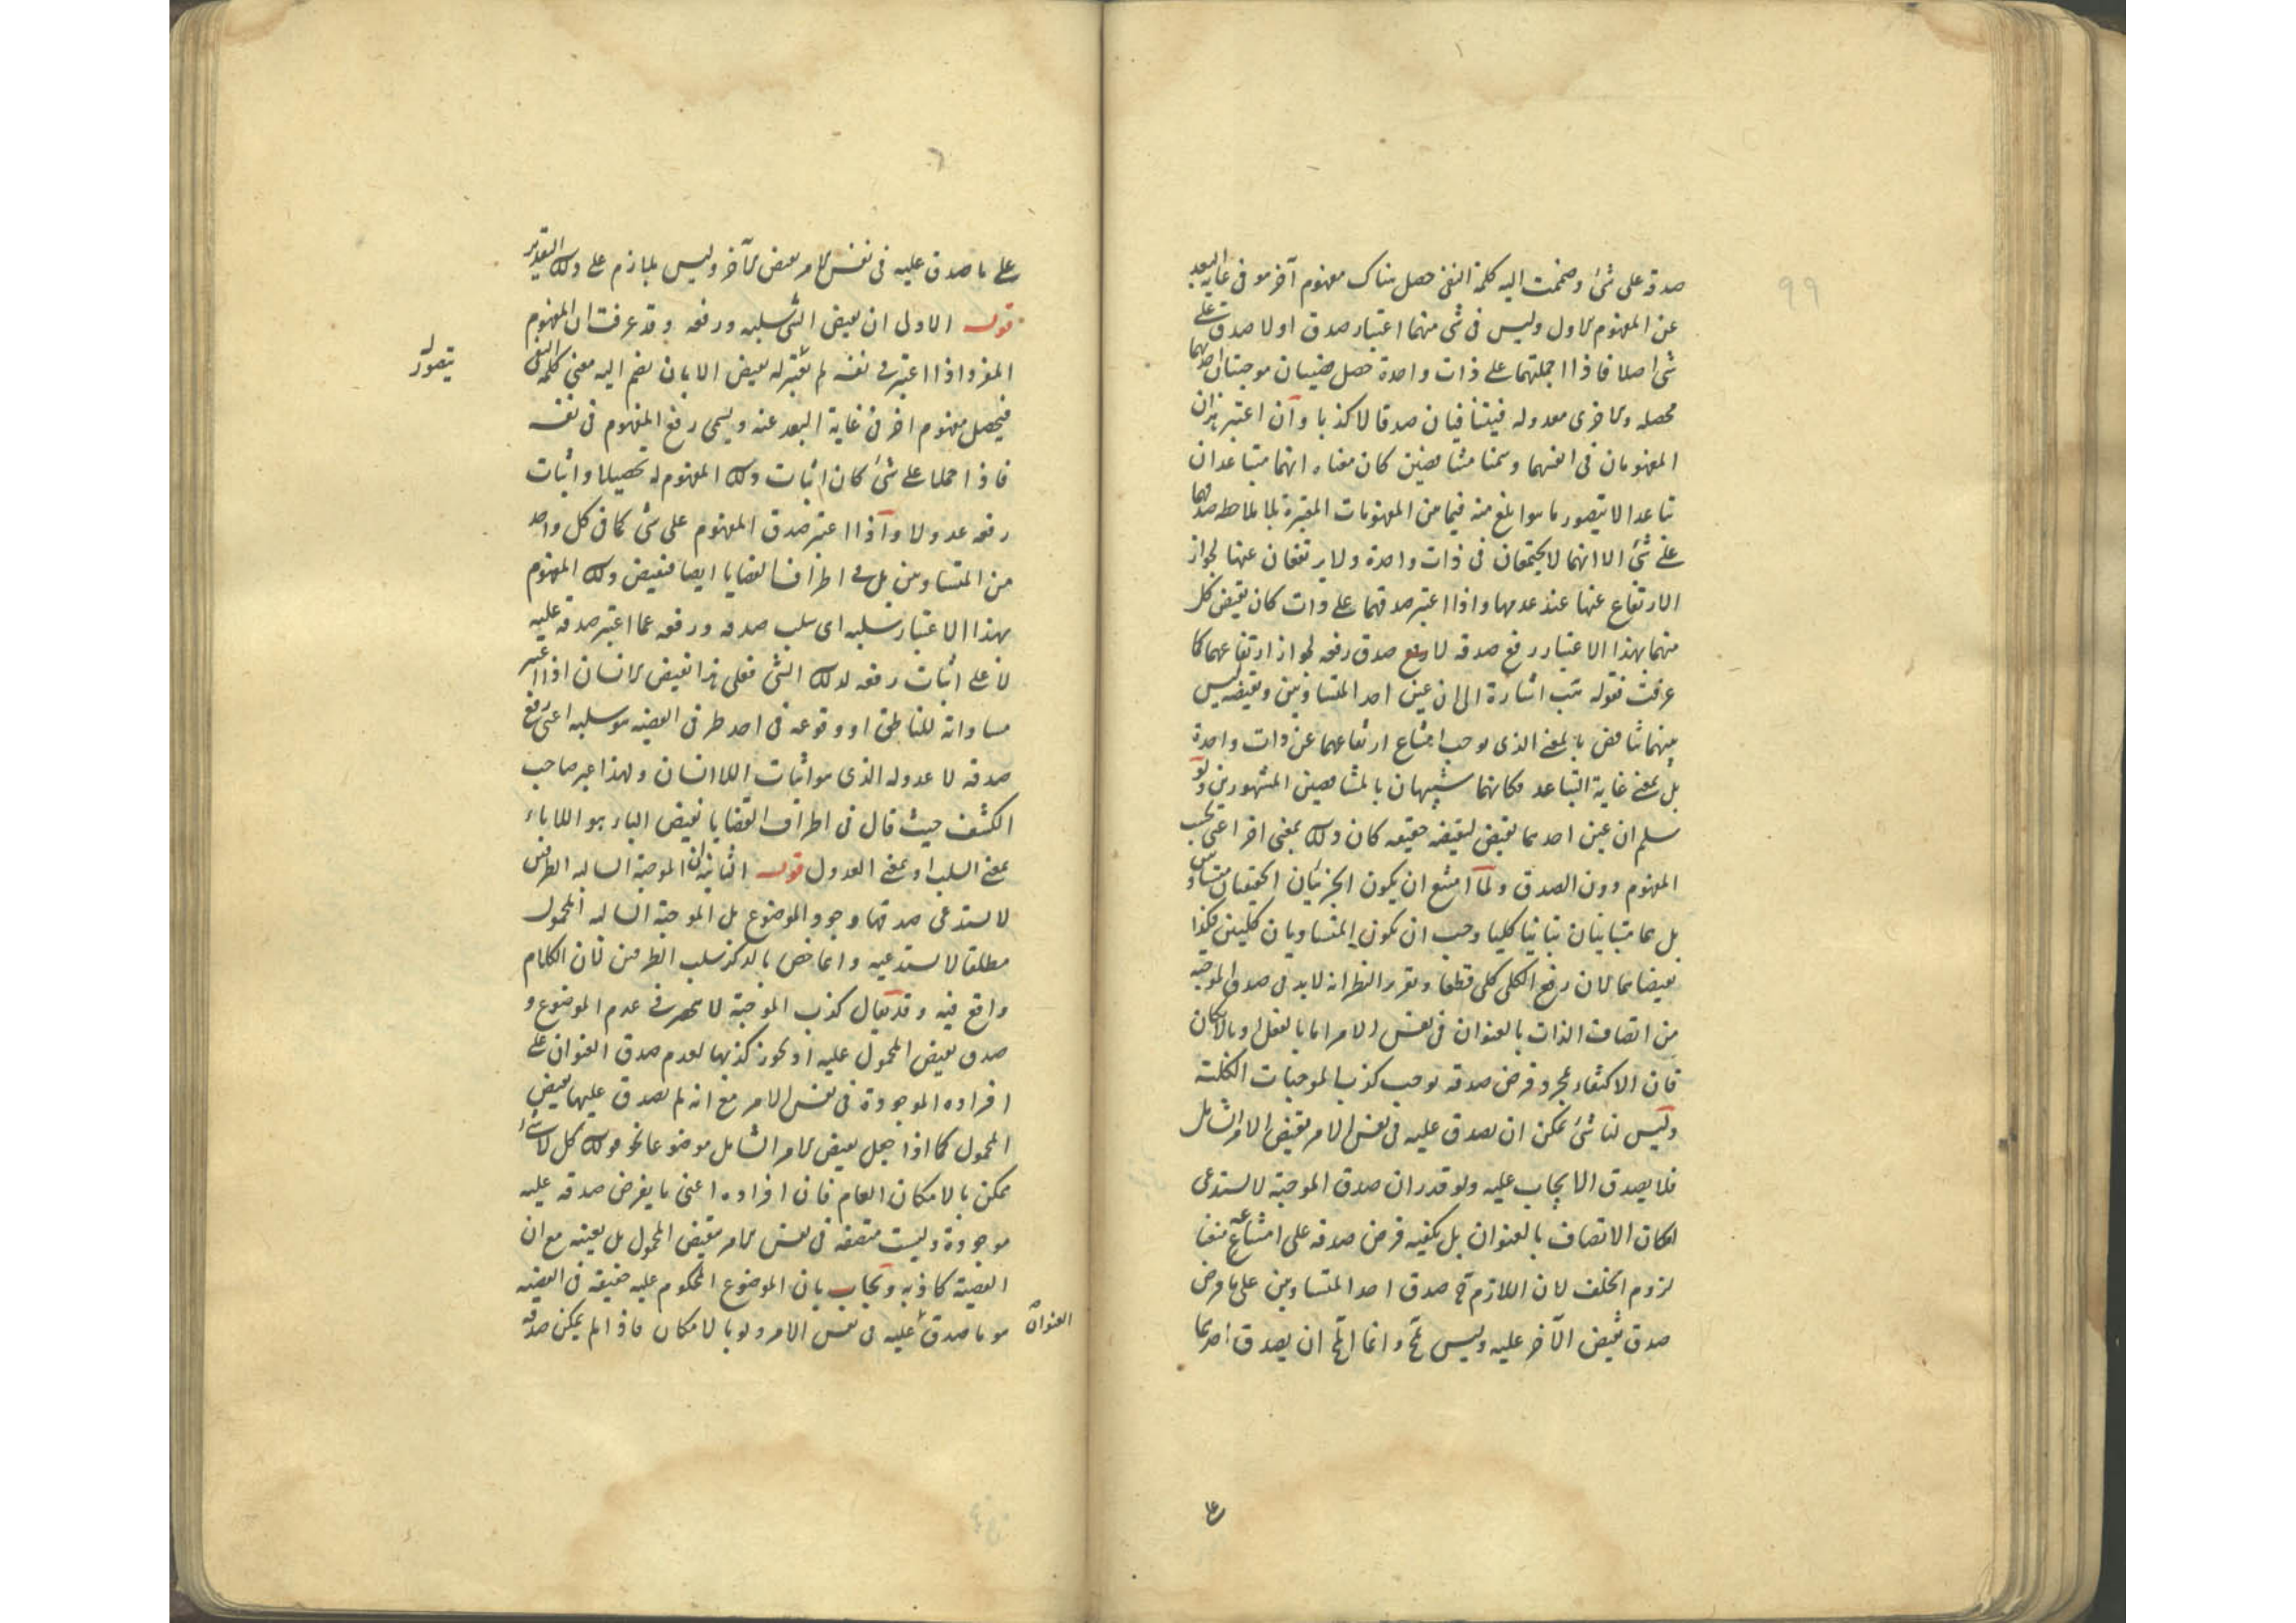 ٩٩
صدقه على شئ وضمت اليه كلمة النفى حصل هناك مفهوم آخر هو فى غاية البعد
عن المفهوم الاول وليس فى شئ منهما اعتبار صدق او لا صدق على
شئ اصلا فاذا احملتهما على ذات واحدة حصل قضيتان موجبتان احديهما
محصله والاخرى معدوله فيتنافيان صدقا لا كذبا وان اعتبر هذان
المفهومان فى انفسهما وسمنا متناقضين كان معناه انهما متباعدان
تباعدا لا يتصور ما هو ابلغ منه فيما من المفهومات المعتبرة بلا ملاحظه صدقهما
على شئ الا انهما لا يجتمعان فى ذات واحدة ولا يرتفعان عنها لجواز
الارتفاع عنها عند عدمها واذا اعتبر صدقهما على ذات كان نقيض كل
منهما بهذا الاعتبار رفع صدقه لا صدق رفعه لجواز ارتفاعهما كما
عرفت فقوله اشارة الى ان عين احد المتساويين ونقيضه ليس
بينهما تناقض بالمعنى الذى يوجب امتناع ارتفاعهما عن ذات واحدة
بل بمعنى غاية التباعد فكانهما شبيهان بالمتناقضين المشهورين ولو
سلم ان عين احدهما نقيض لنقيضه حقيقه كان ذلك بمعنى اخر اعنى بحسب
المفهوم دون الصدق ولما امتنع ان يكون الجزئيان الحقيقيان متساويين
بل هما متباينان تباينا كليا وجب ان يكون المتساويان كليين فكذا
نقيضاهما لان رفع الكلى كلى قطعا وتقرير النظر انه لابد فى صدق الموجبه
من اتصاف الذات بالعنوان فى نفس الامر اما بالفعل او بالامكان
فان الاكتفاء بمجرد فرض صدقه يوجب كذب الموجبات الكلية
وليس لنا شئ يمكن ان يصدق عليه فى نفس الامر نقيض الامر الشامل
فلا يصدق الايجاب عليه ولو قدر ان صدق الموجبة لا يستدعى
امكان الاتصاف بالعنوان بل يكفيه فرض صدقه على امتناعه منعنا
لزوم الخلف لان اللازم ح صدق احد المتساويين على ما فرض
صدق نقيض الآخر عليه وليس بمح وانما المح ان يصدق احدهما
على
على ما صدق عليه فى نفس الامر نقيض الآخر وليس بلازم على ذلك التقدير
قوله الاول ان نقيض الشئ سلبه ورفعه وقد عرفت ان المفهوم
المفرد اذا اعتبر فى نفسه لم يعتبر له نقيض الا بان يضم اليه معنى كلمة النفى
يتصور
فيحصل مفهوم اخر فى غاية البعد عنه ويسمى رفع المفهوم فى نفسه
فاذا حملا على شئ كان اثبات ذلك المفهوم له تحصيلا واثبات
رفعه عدولا واذا اعتبر صدق المفهوم على شئ كما فى كل واحد
من المتساويين بل فى اطراف القضايا ايضا فنقيض ذلك المفهوم
بهذا الاعتبار سلبه اى سلب صدقه ورفعه عما اعتبر صدقه عليه
لا على اثبات رفعه لذلك الشئ فعلى هذا نقيض الانسان اذا اعتبر
مساواته للناطق او وقوعه فى احد طرفى القضيه هو سلبه اعنى رفع
صدقه لا عدوله الذى هو اثبات اللاانسان ولهذا عبر صاحب
الكشف حيث قال فى اطراف القضايا نقيض الباء هو اللاباء
بمعنى السلب او بمعنى العدول قوله الثانية ان الموجبة السالبه الطرفين
لا يستدعى صدقها وجود الموضوع بل الموجبة السالبه المحمول
مطلقا لا يستدعيه وانما خص بالذكر سلب الطرفين لان الكلام
واقع فيه وقد يقال كذب الموجبة لا ينحصر فى عدم الموضوع و
صدق نقيض المحمول عليه اذ يجوز كذبها لعدم صدق العنوان على
افراده الموجودة فى نفس الامر مع انه لم يصدق عليها نقيض
المحمول كما اذا جعل نقيض الامر الشامل موضوعا نحو قولك كل لا شئ
ممكن بالامكان العام فان افراده اعنى ما يفرض صدقه عليه
موجودة وليست متصفه فى نفس الامر بنقيض المحمول بل بعينه مع ان
القضية كاذبه ويجاب بان الموضوع المحكوم عليه حقيقه فى القضيه
هو ما صدق عليه فى نفس الامر ولو بالامكان فاذا لم يمكن صدقه
العنوان